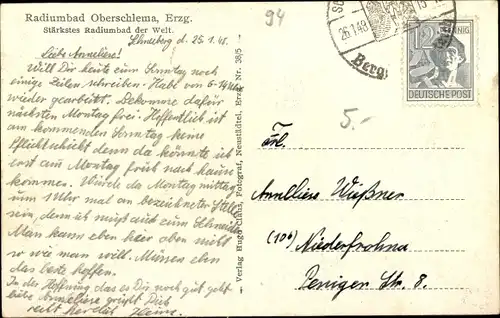 Radiumbad Oberschlema, Erzg.
Stärkstes Radiumbad der Welt.
Schneeberg d. 25.1.48.
Liebe Anneliese!
Will Dir heute zum Sonntag noch
einige Zeilen schreiben. Habe von 6-14 Uhr
wieder gearbeitet. Bekomme dafür
nächsten Montag frei. Hoffentlich ist
am kommenden Sonntag keine
Pflichtschicht denn da könnte ich
erst am Montag früh nach Hause
kommen. Würde da Montag mittag
um 1 Uhr mal an bezeichneter Stelle
sein, denn ich muß auch zum Schneider
Man kann eben hier oben nicht
so wie man will. Müssen eben
das beste hoffen.
In der Hoffnung das es Dir noch gut geht
liebe Anneliese grüßt Dich
recht herzlich Heinz.
Verlag Hugo Claus, Fotograf, Neustädtel, Erzg. Nr. 38/5
94
26.1.48
Berg
12 PFENNIG
DEUTSCHE POST
5.-
Frl.
Anneliese Wießner
(10b) Niederfrohna
Peniger Str. 8.